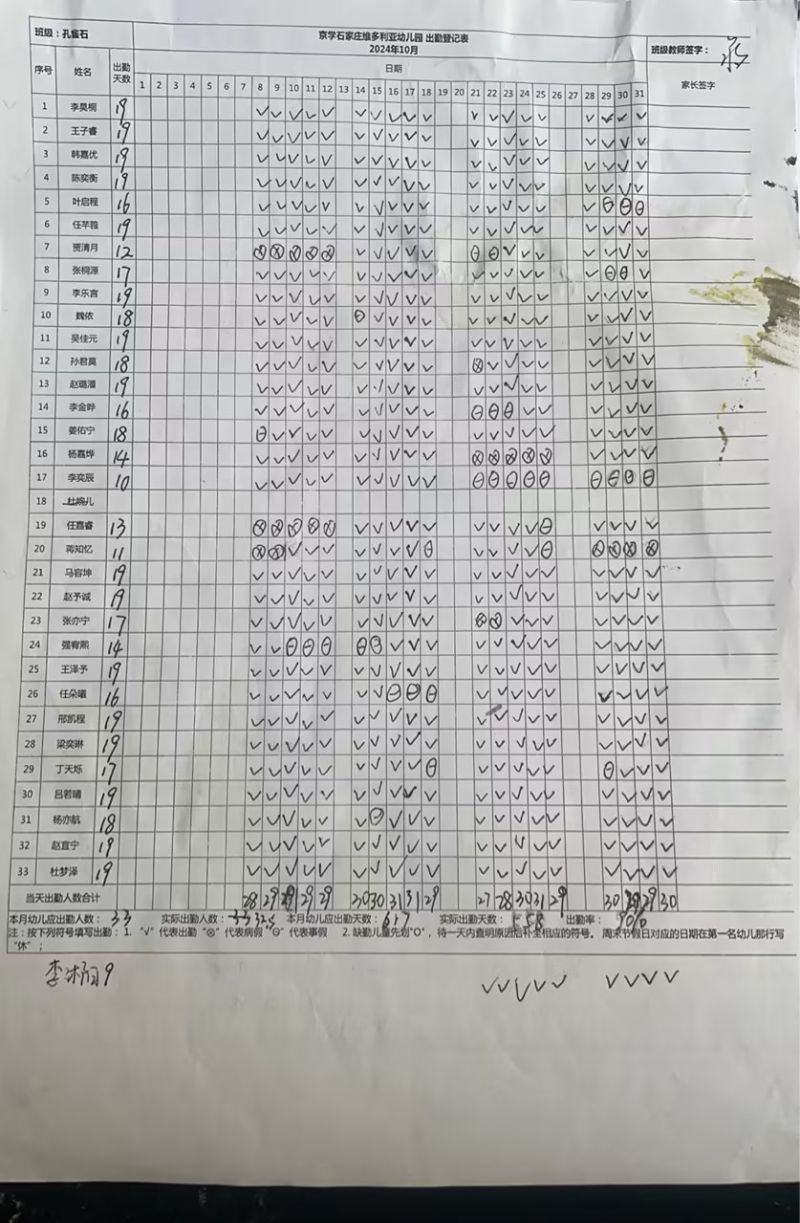 班级：孔雀石
京学石家庄维多利亚幼儿园 出勤登记表
2024年10月
班级教师签字：
序号 姓名 出勤天数 日期 家长签字
1 2 3 4 5 6 7 8 9 10 11 12 13 14 15 16 17 18 19 20 21 22 23 24 25 26 27 28 29 30 31
1 李昊桐 19 √ √ √ √ √ √ √ √ √ √ √ √ √ √ √ √ √ √ √
2 王子睿 19 √ √ √ √ √ √ √ √ √ √ √ √ √ √ √ √ √ √ √
3 韩嘉优 19 √ √ √ √ √ √ √ √ √ √ √ √ √ √ √ √ √ √ √
4 陈奕衡 19 √ √ √ √ √ √ √ √ √ √ √ √ √ √ √ √ √ √ √
5 叶启程 16 √ √ √ √ √ √ √ √ √ √ √ √ √ √ √ √ ⊖ ⊖ ⊖
6 任芊雅 19 √ √ √ √ √ √ √ √ √ √ √ √ √ √ √ √ √ √ √
7 贾清月 12 ⊗ ⊗ ⊗ ⊗ ⊗ √ √ √ √ √ ⊖ ⊖ √ √ √ √ √ √ √
8 张桐源 17 √ √ √ √ √ √ √ √ √ √ √ √ √ √ √ √ ⊖ ⊖ √
9 李乐言 19 √ √ √ √ √ √ √ √ √ √ √ √ √ √ √ √ √ √ √
10 魏依 18 √ √ √ √ √ ⊖ √ √ √ √ √ √ √ √ √ √ √ √ √
11 吴佳元 19 √ √ √ √ √ √ √ √ √ √ √ √ √ √ √ √ √ √ √
12 孙君莫 18 √ √ √ √ √ √ √ √ √ √ ⊗ √ √ √ √ √ √ √ √
13 赵璐潘 19 √ √ √ √ √ √ √ √ √ √ √ √ √ √ √ √ √ √ √
14 李金晔 16 √ √ √ √ √ √ √ √ √ √ ⊖ ⊖ ⊖ √ √ √ √ √ √
15 姜佑宁 18 ⊖ √ √ √ √ √ √ √ √ √ √ √ √ √ √ √ √ √ √
16 杨嘉烨 14 √ √ √ √ √ √ √ √ √ √ ⊗ ⊗ ⊗ ⊗ ⊗ √ √ √ √
17 李奕辰 10 √ √ √ √ √ √ √ √ √ √ ⊖ ⊖ ⊖ ⊖ ⊖ ⊖ ⊖ ⊖ ⊖
18 杜婉儿
19 任嘉睿 13 ⊗ ⊗ ⊗ ⊗ ⊗ √ √ √ √ √ √ √ √ √ ⊖ √ √ √ √
20 蒋知忆 11 ⊗ ⊗ √ √ √ √ √ √ √ ⊖ √ √ √ √ ⊖ ⊗ ⊗ ⊗ ⊗
21 马容坤 19 √ √ √ √ √ √ √ √ √ √ √ √ √ √ √ √ √ √ √
22 赵予诚 19 √ √ √ √ √ √ √ √ √ √ √ √ √ √ √ √ √ √ √
23 张亦宁 17 √ √ √ √ √ √ √ √ √ √ ⊗ ⊗ √ √ √ √ √ √ √
24 强宥熙 14 √ √ ⊖ ⊖ ⊖ ⊖ ⊖ √ √ √ √ √ √ √ √ √ √ √ √
25 王泽予 19 √ √ √ √ √ √ √ √ √ √ √ √ √ √ √ √ √ √ √
26 任朵曦 16 √ √ √ √ √ √ √ ⊖ ⊖ ⊖ √ √ √ √ √ √ √ √ √
27 邢凯程 19 √ √ √ √ √ √ √ √ √ √ √ √ √ √ √ √ √ √ √
28 梁奕琳 19 √ √ √ √ √ √ √ √ √ √ √ √ √ √ √ √ √ √ √
29 丁天烁 17 √ √ √ √ √ √ √ √ √ ⊖ √ √ √ √ √ ⊖ √ √ √
30 吕若晴 19 √ √ √ √ √ √ √ √ √ √ √ √ √ √ √ √ √ √ √
31 杨亦航 18 √ √ √ √ √ √ ⊖ √ √ √ √ √ √ √ √ √ √ √ √
32 赵宜宁 19 √ √ √ √ √ √ √ √ √ √ √ √ √ √ √ √ √ √ √
33 杜梦泽 19 √ √ √ √ √ √ √ √ √ √ √ √ √ √ √ √ √ √ √
当天出勤人数合计 28 29 29 29 29 30 30 31 31 29 27 28 30 31 29 30 29 29 30
本月幼儿应出勤人数：33 实际出勤人数： 本月幼儿应出勤天数：617 实际出勤天数：558 出勤率：90%
注：按下列符号填写出勤：1. "√" 代表出勤 "⊗" 代表病假 "⊖" 代表事假 2. 缺勤儿童先划"O"，待一天内查明原因后补全相应的符号。 周末节假日对应的日期在第一名幼儿那行写
"休"；
9
√ √ √ √ √ √ √ √ √